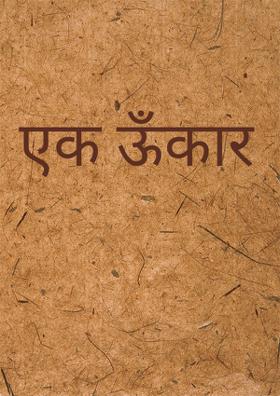 एक ऊँकार